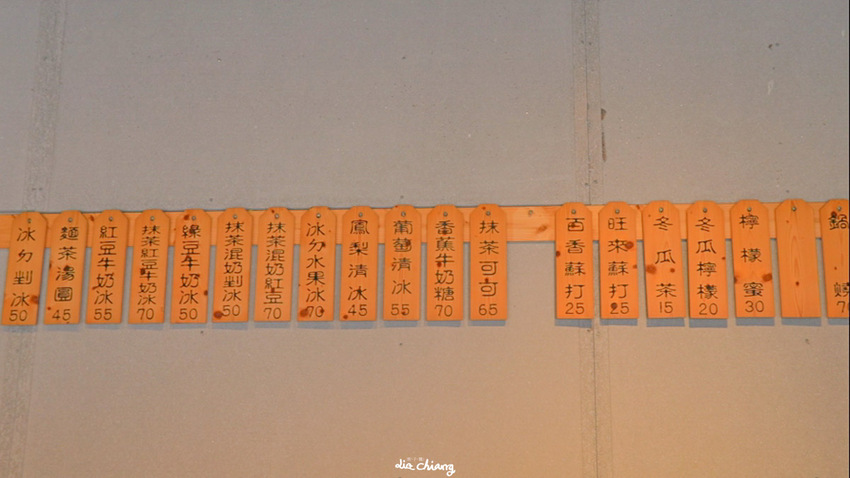 冰ㄉ剉冰
50
麵茶湯圓
45
紅豆牛奶冰
55
抹茶紅豆牛奶冰
70
綠豆牛奶冰
50
抹茶混奶剉冰
50
抹茶混奶紅豆
70
冰ㄉ水果冰
70
鳳梨清冰
45
葡萄清冰
55
香蕉牛奶糖
70
抹茶可可
65
百香蘇打
25
旺來蘇打
25
冬瓜茶
15
冬瓜檸檬
20
檸檬蜜
30
鍋燒
70
Lia Chiang